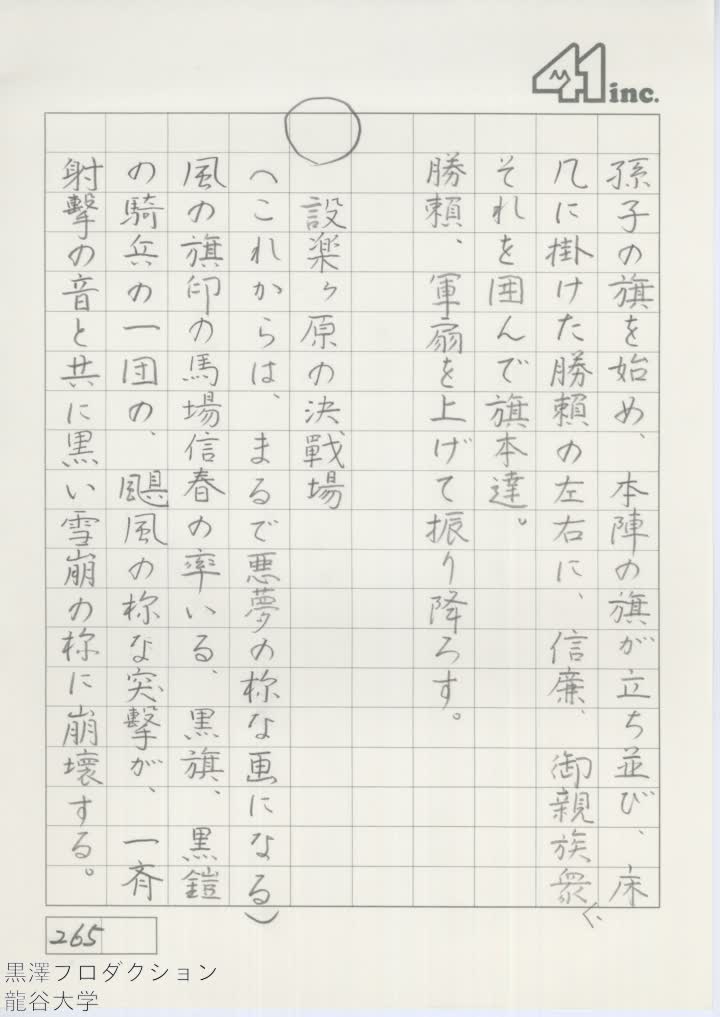 41 inc.
孫子の旗を始め、本陣の旗が立ち並び、床
几に掛けた勝頼の左右に、信廉、御親族衆、
それを囲んで旗本達。
勝頼、軍扇を上げて振り降ろす。
○
設楽ヶ原の決戦場
(これからは、まるで悪夢の様な画になる)
風の旗印の馬場信春の率いる、黒旗、黒鎧
の騎兵の一団の、颶風の様な突撃が、一斉
射撃の音と共に黒い雪崩の様に崩壊する。
265
黒澤プロダクション
龍谷大学